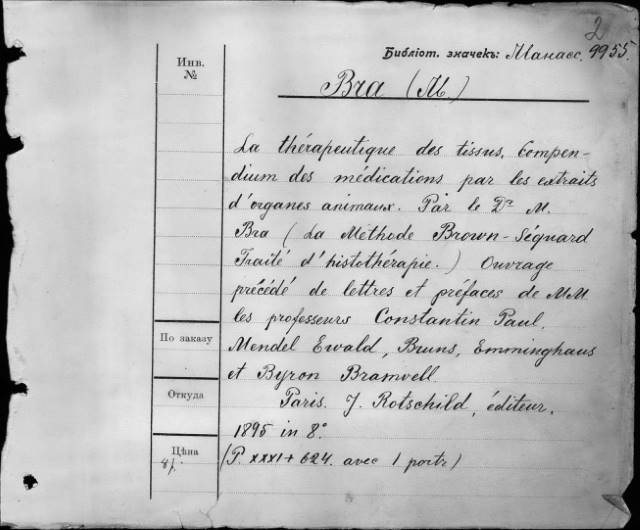 2
Библіот. значекъ: Манасс. 9955.
Инв.
№
Bra (M)
La thérapeutique des tissus. Compen-
dium des médications par les extraits
d'organes animaux. Par le Dr M.
Bra (La Méthode Brown-Séguard
Traité d'histothérapie.) Ouvrage
précédé de lettres et préfaces de MM.
les professeurs Constantin Paul,
Mendel Ewald, Bruns, Emminghaus
et Byron Bramvell.
Paris. J. Rotschild, éditeur.
1895 in 8°.
(P. XXXI + 624. avec 1 portr)
По заказу
Откуда
Цѣна